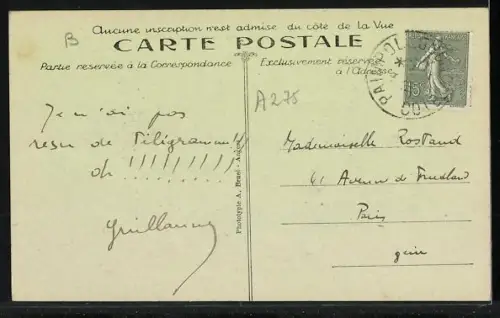 B
Aucune inscription n'est admise du côté de la Vue
CARTE POSTALE
Partie reservée à la Correspondance
Exclusivement réservée
à l'Adresse
A 275
Je n'ai pas
resu de Téligramme!!
oh !!!!!!!!!
Guillaume
Phototypie A. Bruel - Angers
Mademoiselle Rostand
41 Avenue de
Paris
PAIMPOL
15